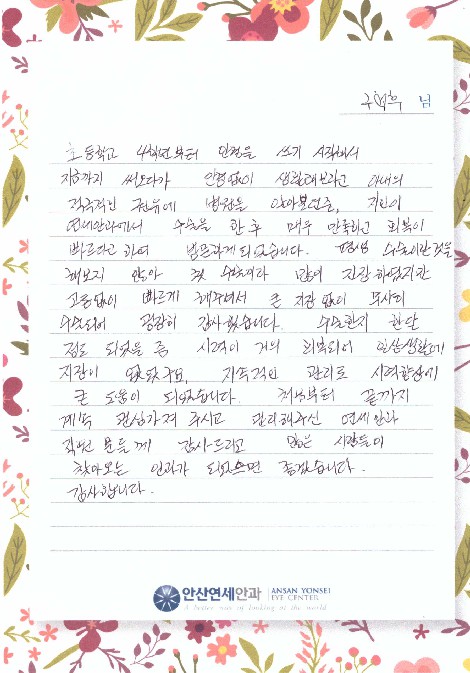 님
초등학교 4학년부터 안경을 쓰기 시작해서
지금까지 써오다가 안경없이 생활해보라고 아내의
적극적인 권유에 병원을 알아보던중, 지인이
연세안과에서 수술을 한 후 매우 만족하고 회복이
빠르다고 하여 방문하게 되었습니다. 평생 수술이란 것을
해보지 않아 첫 수술이라 많이 긴장하였지만
고통없이 빠르게 해주셔서 큰 지장 없이 무사히
수술되어 굉장히 감사했습니다. 수술한지 한달
정도 되었을 즘 시력이 거의 회복되어 일상생활에
지장이 없었구요, 지속적인 관리로 시력향상에
큰 도움이 되었습니다. 처음부터 끝까지
계속 관심가져 주시고 관리해주신 연세안과
직원 분들께 감사드리고 많은 사람들이
찾아오는 안과가 되었으면 좋겠습니다.
감사합니다.
안산연세안과 ANSAN YONSEI
EYE CENTER
A better way of looking at the world